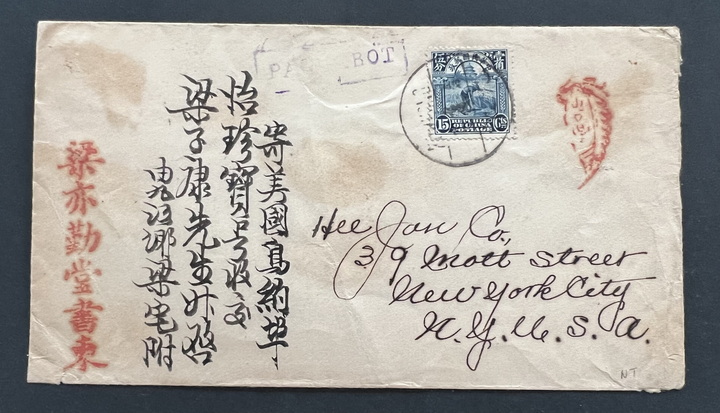 寄美國鳥約埠
怡珍寶号收交
梁子康先生升啓
九江鄉梁宅附
梁亦勤堂書柬
PA BOT
15 Cts
REPUBLIC OF CHINA
POSTAGE
Hee Jan Co,
39 Mott Street
New York City
N.Y. U.S.A.
NT